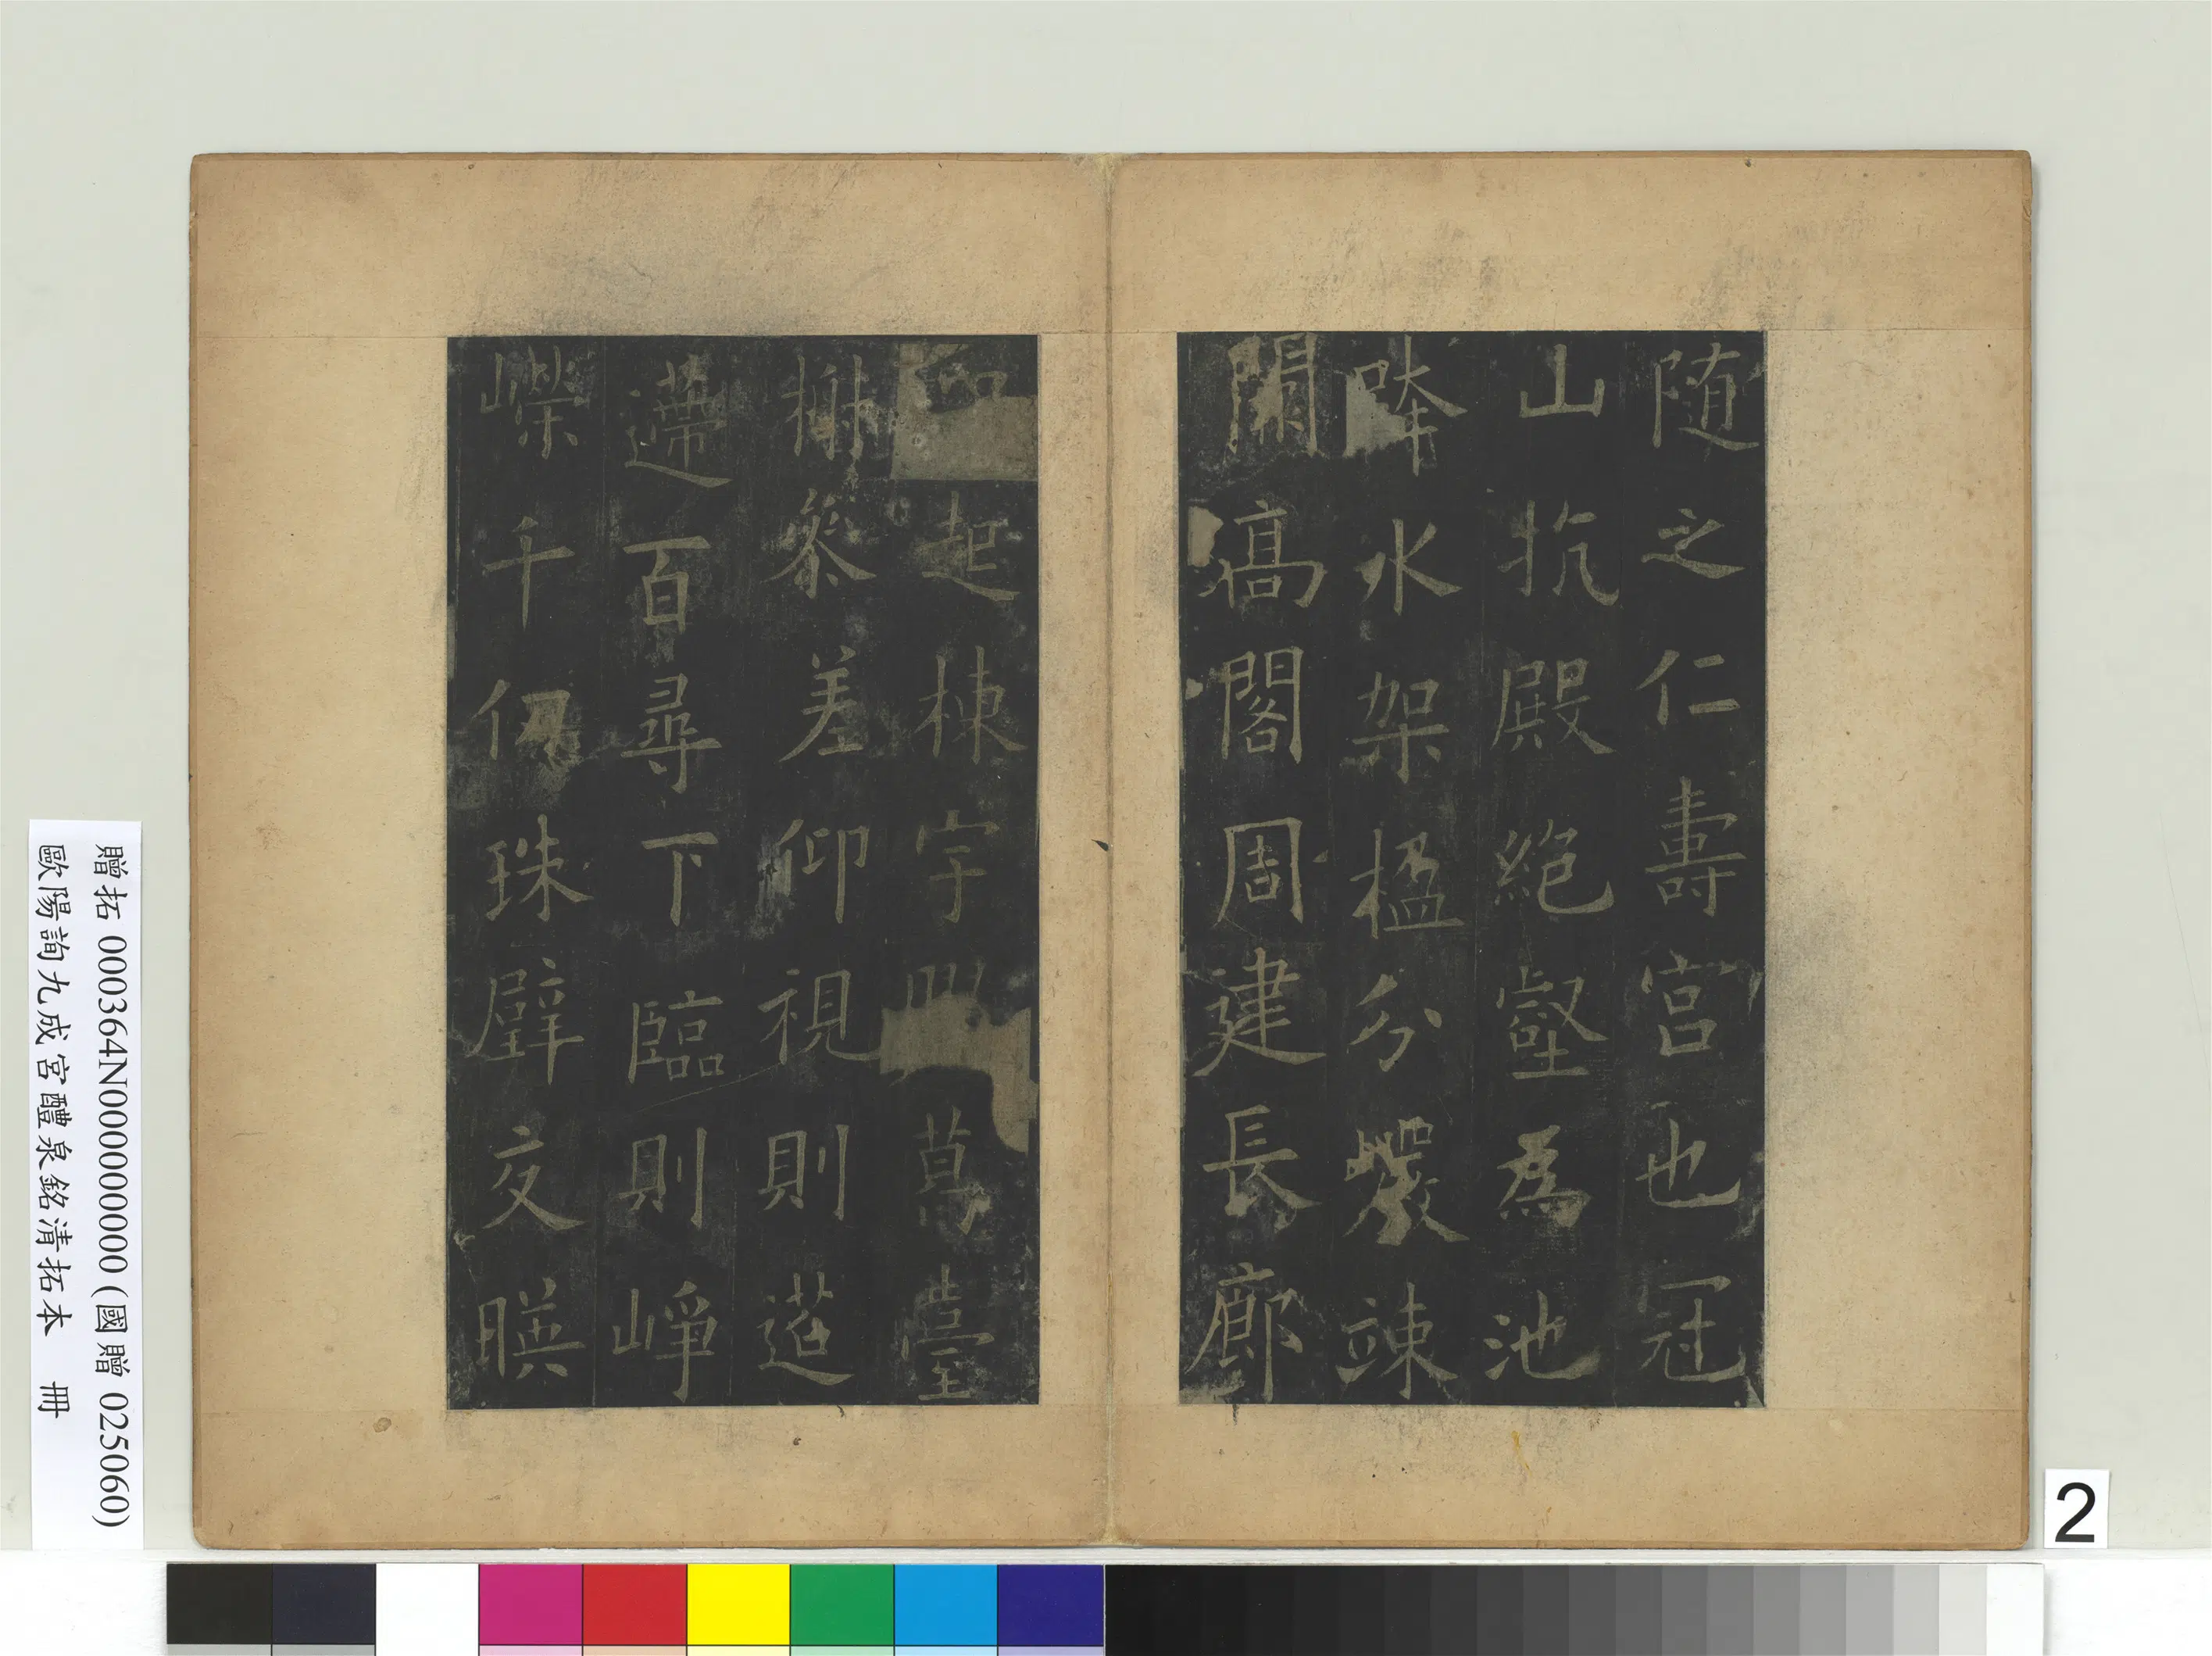 随之仁壽宮也冠
山抗殿絶壑為池
跨水架楹分巖竦
闕高閣周建長廊
四起棟宇葛臺
榭參差仰視則迢
遰百尋下臨則崢
嶸千仞珠璧交暎
贈拓 000364N000000000 (國贈 025060)
歐陽詢九成宮醴泉銘清拓本 冊
2